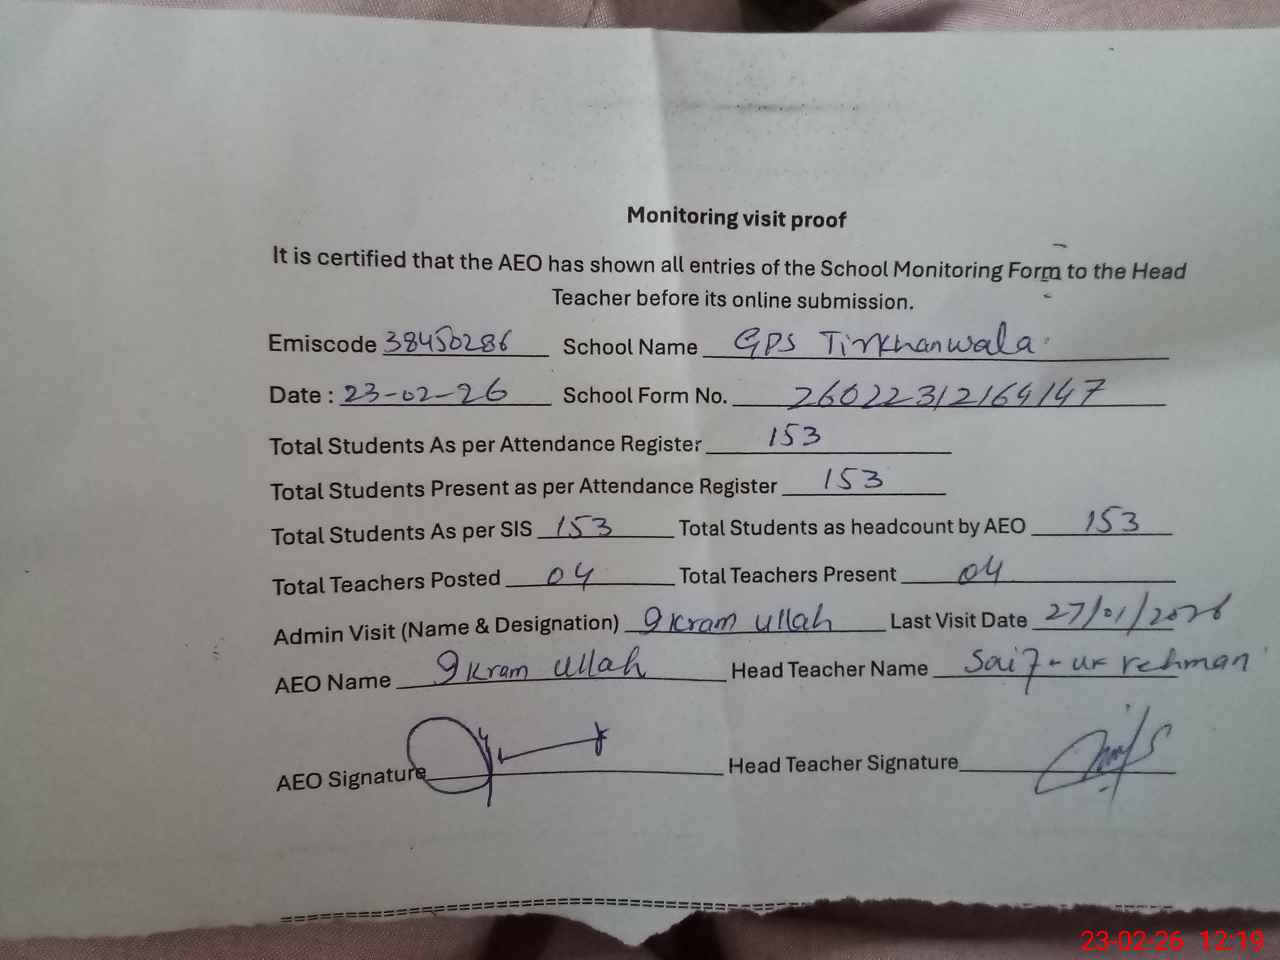 Monitoring visit proof
It is certified that the AEO has shown all entries of the School Monitoring Form to the Head
Teacher before its online submission.
Emiscode 38450286 School Name GPS Tirkhanwala
Date : 23-02-26 School Form No. 26022312164147
Total Students As per Attendance Register 153
Total Students Present as per Attendance Register 153
Total Students As per SIS 153 Total Students as headcount by AEO 153
Total Teachers Posted 04 Total Teachers Present 04
Admin Visit (Name & Designation) Ikram ullah Last Visit Date 27/01/2026
AEO Name Ikram ullah Head Teacher Name Saif-ur rehman
AEO Signature Head Teacher Signature
23-02-26 12:19